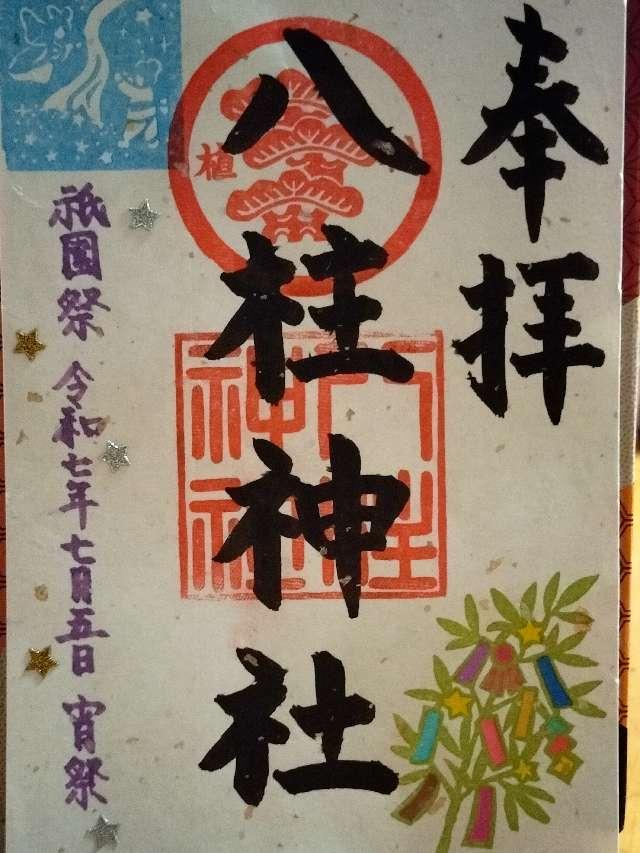 奉拝
八柱神社
祇園祭 令和七年七月五日 宵祭
植
八柱
神社